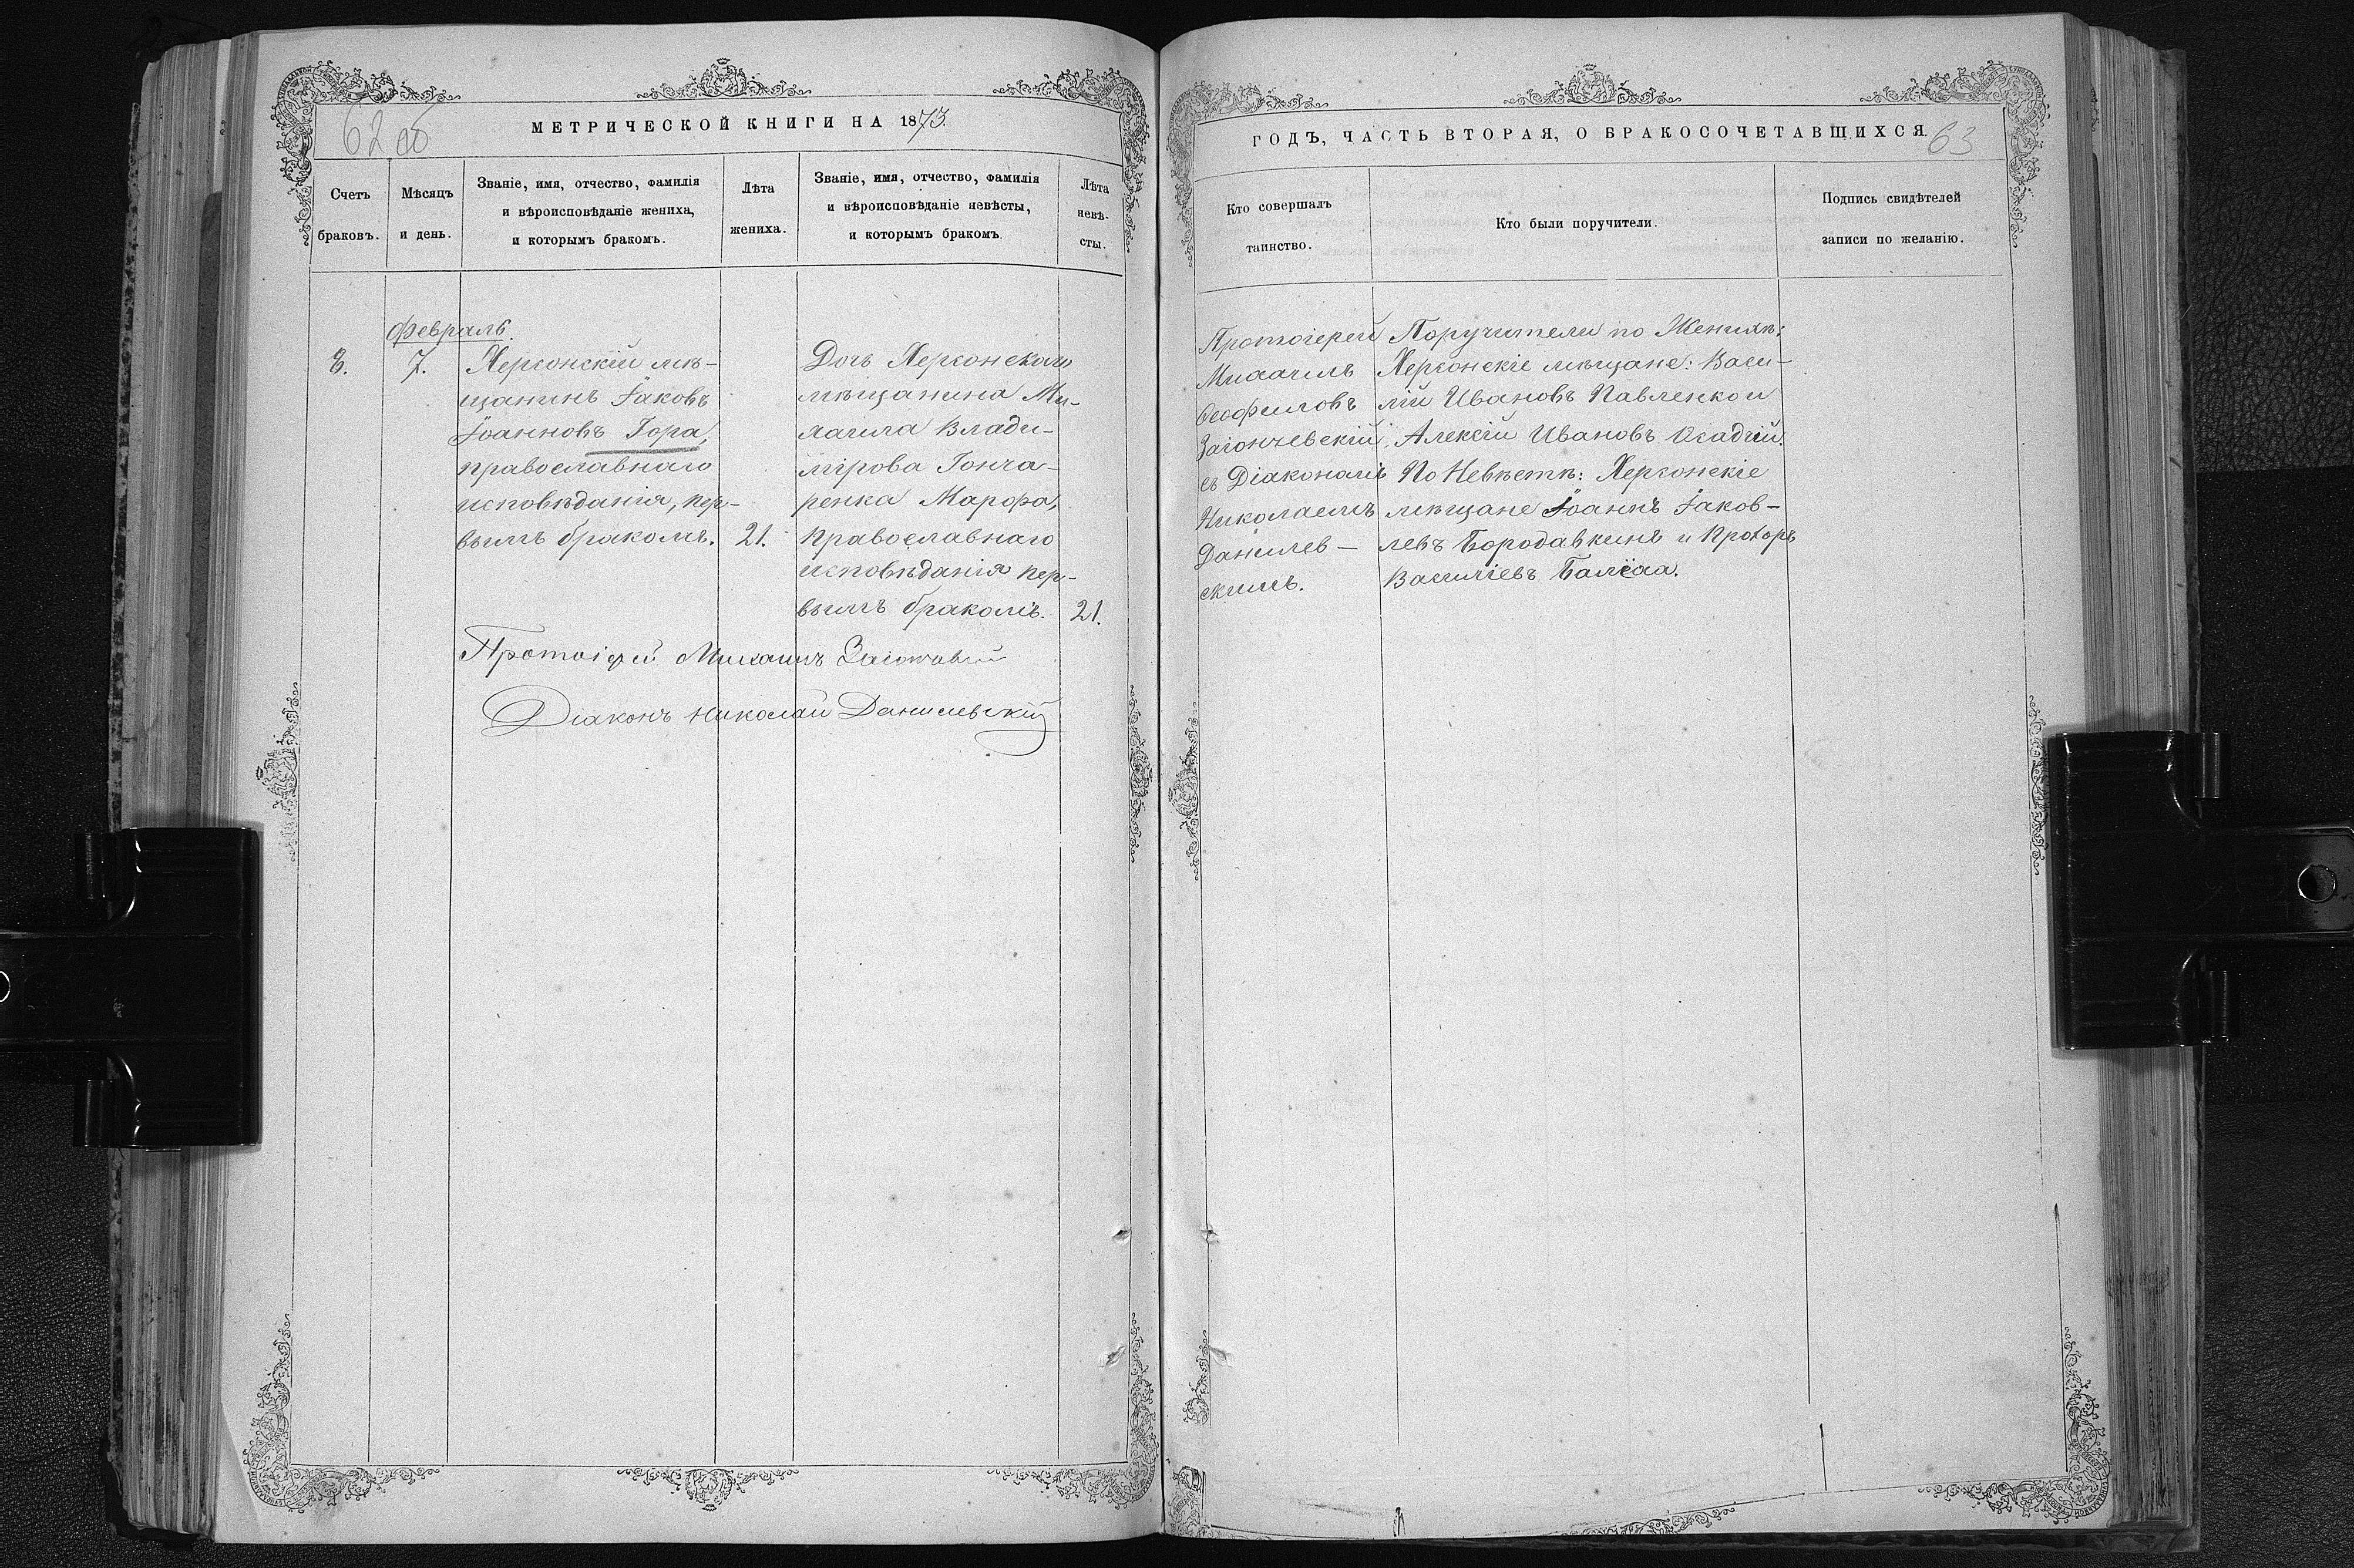 62 об
МЕТРИЧЕСКОЙ КНИГИ НА 1873.
Счетъ браковъ.
Мѣсяцъ и день.
Званіе, имя, отчество, фамилія
и вѣроисповѣданіе жениха,
и которымъ бракомъ.
Лѣта
жениха.
Званіе, имя, отчество, фамилія
и вѣроисповѣданіе невѣсты,
и которымъ бракомъ.
Лѣта
невѣ-
сты.
Февраль
8.
7.
Херсонскій мѣ-
щанинъ Іаковъ
Іоанновъ Гора,
православнаго
исповѣданія, пер-
вымъ бракомъ.
21.
Дочь Херсонскаго
мѣщанина Ми-
хаила Влади-
мірова Гонча-
ренка Марфа,
Православнаго
исповѣданія пер-
вымъ бракомъ.
21.
Протоіерей Михаилъ
Діаконъ Николай Данилевскій
ГОДЪ, ЧАСТЬ ВТОРАЯ, О БРАКОСОЧЕТАВШИХСЯ.
63
Кто совершалъ
таинство.
Кто были поручители.
Подпись свидѣтелей
записи по желанію.
Протоіерей
Михаилъ
Ѳеофиловъ
Загончевскій
съ Діакономъ
Николаемъ
Данилев-
скимъ.
Поручители по Женихѣ:
Херсонскіе мѣщане: Васи-
лій Ивановъ Павленко и
Алексій Ивановъ Осадчій.
По Невѣстѣ: Херсонскіе
мѣщане Іоаннъ Іаков-
левъ Бородавкинъ и Прохоръ
Василіевъ